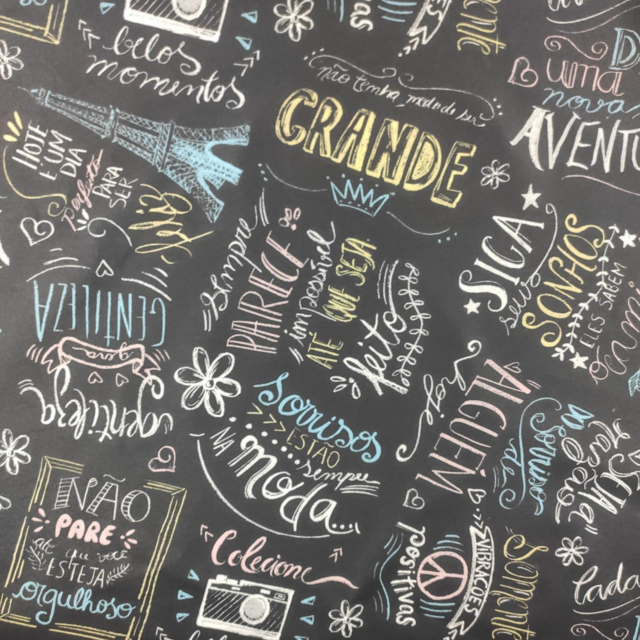 belos
momentos
não tenha medo de ser
GRANDE
D
uma
nova
AVENTU
HOJE
É UM
DIA
Perfeito
PARA
SER
feliz
sempre
PARECE
impossível
ATÉ QUE SEJA
feito
SIGA
seus
SONHOS
ELES SABEM
o caminho
GENTILEZA
gera
gentileza
sorrisos
ESTÃO
sempre
NA
moda...
hoje
ALGUÉM
Sorriso
de
NÃO
PARE
até que você
ESTEJA
orgulhoso
Colecione
Somente
VIBRAÇÕES
positivas
Somente
cada